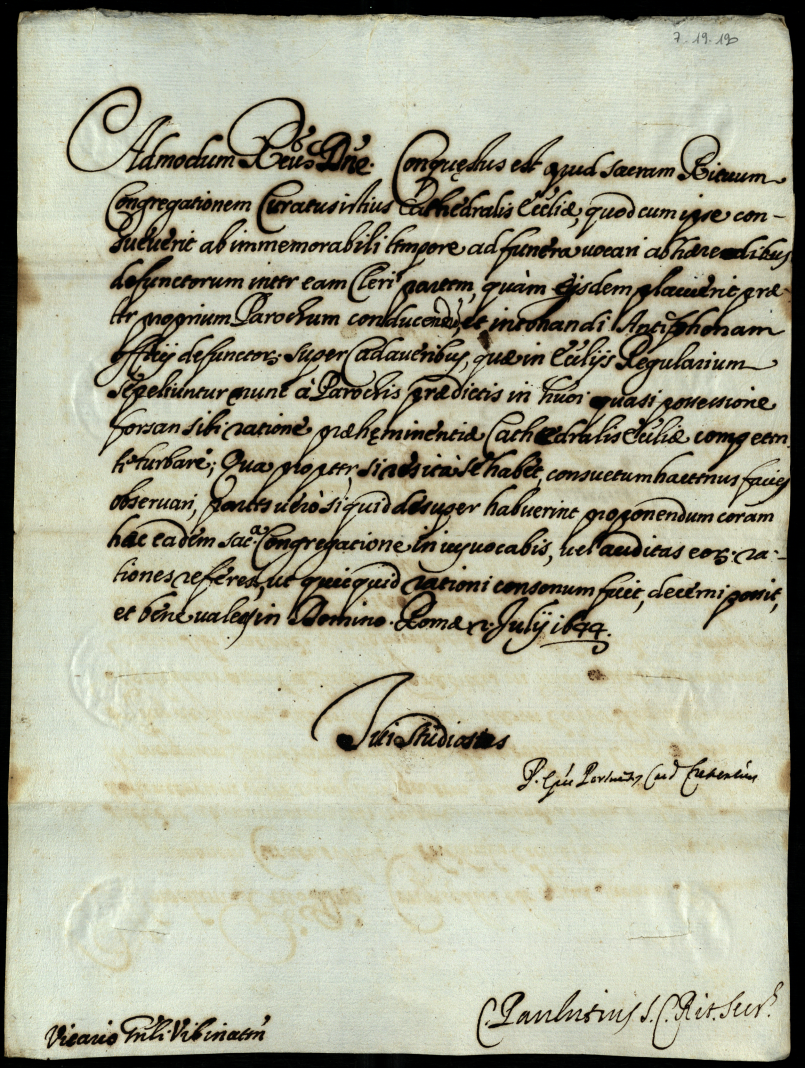 7. 19. 19
Admodum Reu.e Dñe. Conquęstus est apud sacram Rituum
Congregationem Curatus istius Cathedralis Eccliæ, quod cum ipse con-
sueuerit ab immemorabili tempore ad funera uocari ab hæredibus
defunctorum inter eam Cleri partem, quàm eisdem placuerit præ-
ter proprium Parochum conducendi, et intonandi Antiphonam
officij defunctor. super Cadaueribus, quæ in Eccliis Regularium
sepeliuntur nunc à Parochis prædictis in huõi quasi possessione
forsan sibi ratione præhęminentiæ Cathedralis Eccliæ competen-
te turbaretur; Qua propter, si res ita se habet, consuetum hactenus facies
obseruari, partes uerò si quid desuper habuerint proponendum coram
hac eadem sac.a Congregatione in ius uocabis, uel auditas eor. ra-
tiones referes, ut quicquid rationi consonum fuerit, decerni possit,
et bene ualeas in Domino. Romæ 2. Julij 1644.
Tui Studiosus
P. Epũs Portuen. Card. Crescentius
C. Paulutius S. C. Rit. Secr.
Vicario Gñli. Vibinateñ